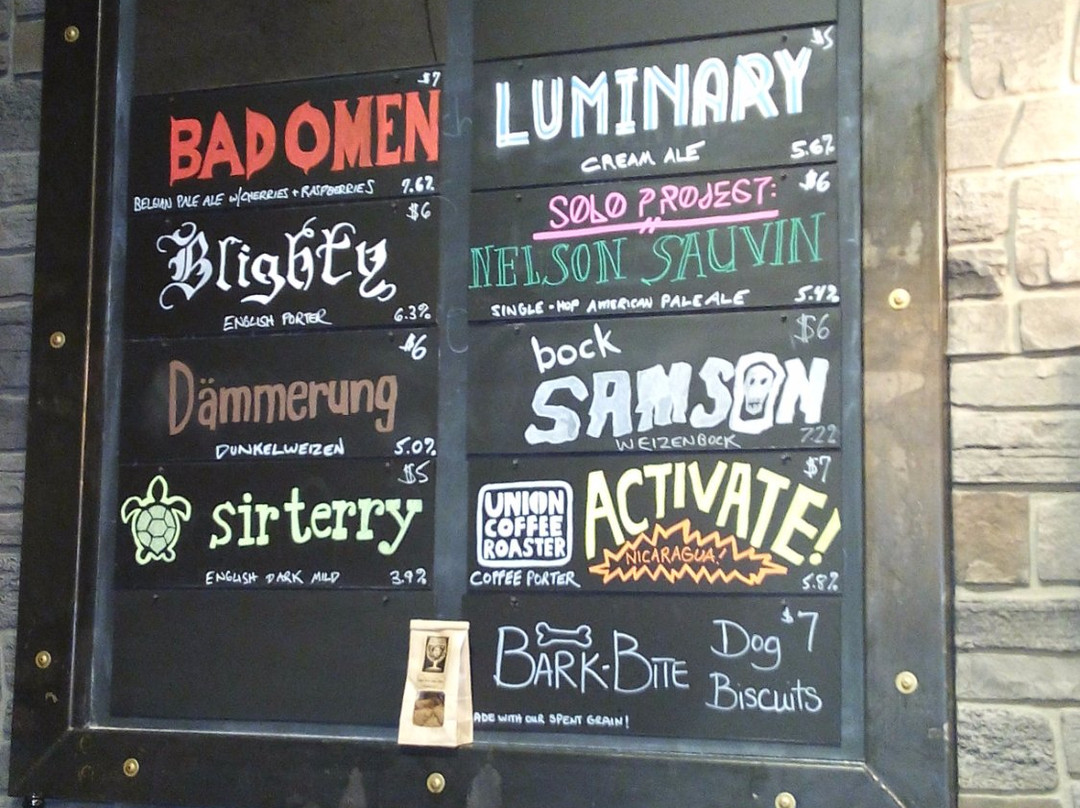 $7
BAD OMEN
BELGIAN PALE ALE W/CHERRIES + RASPBERRIES 7.6%
$6
Blighty
ENGLISH PORTER 6.3%
$6
Dämmerung
DUNKELWEIZEN 5.0%
$5
sir terry
ENGLISH DARK MILD 3.9%
$5
LUMINARY
CREAM ALE 5.6%
$6
SOLO PROJECT:
NELSON SAUVIN
SINGLE-HOP AMERICAN PALE ALE 5.4%
$6
bock
SAMSON
WEIZENBOCK 7.2%
$7
UNION
COFFEE
ROASTER
ACTIVATE!
NICARAGUA!
COFFEE PORTER 5.8%
BARK-BITE
Dog $7
Biscuits
ADE WITH OUR SPENT GRAIN!